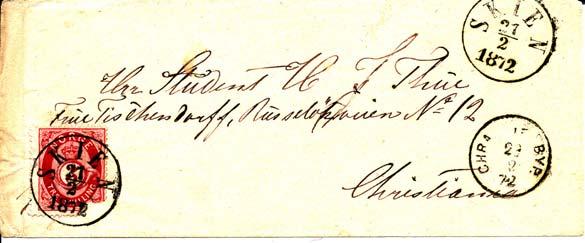 SKIEN
21
2
1872
Hr Student H J Thue
Frue Tischendorff, Russeløkveien No 12
Christiania
NORGE
SKIEN
21
2
1872
CHRA BYP.
2
72